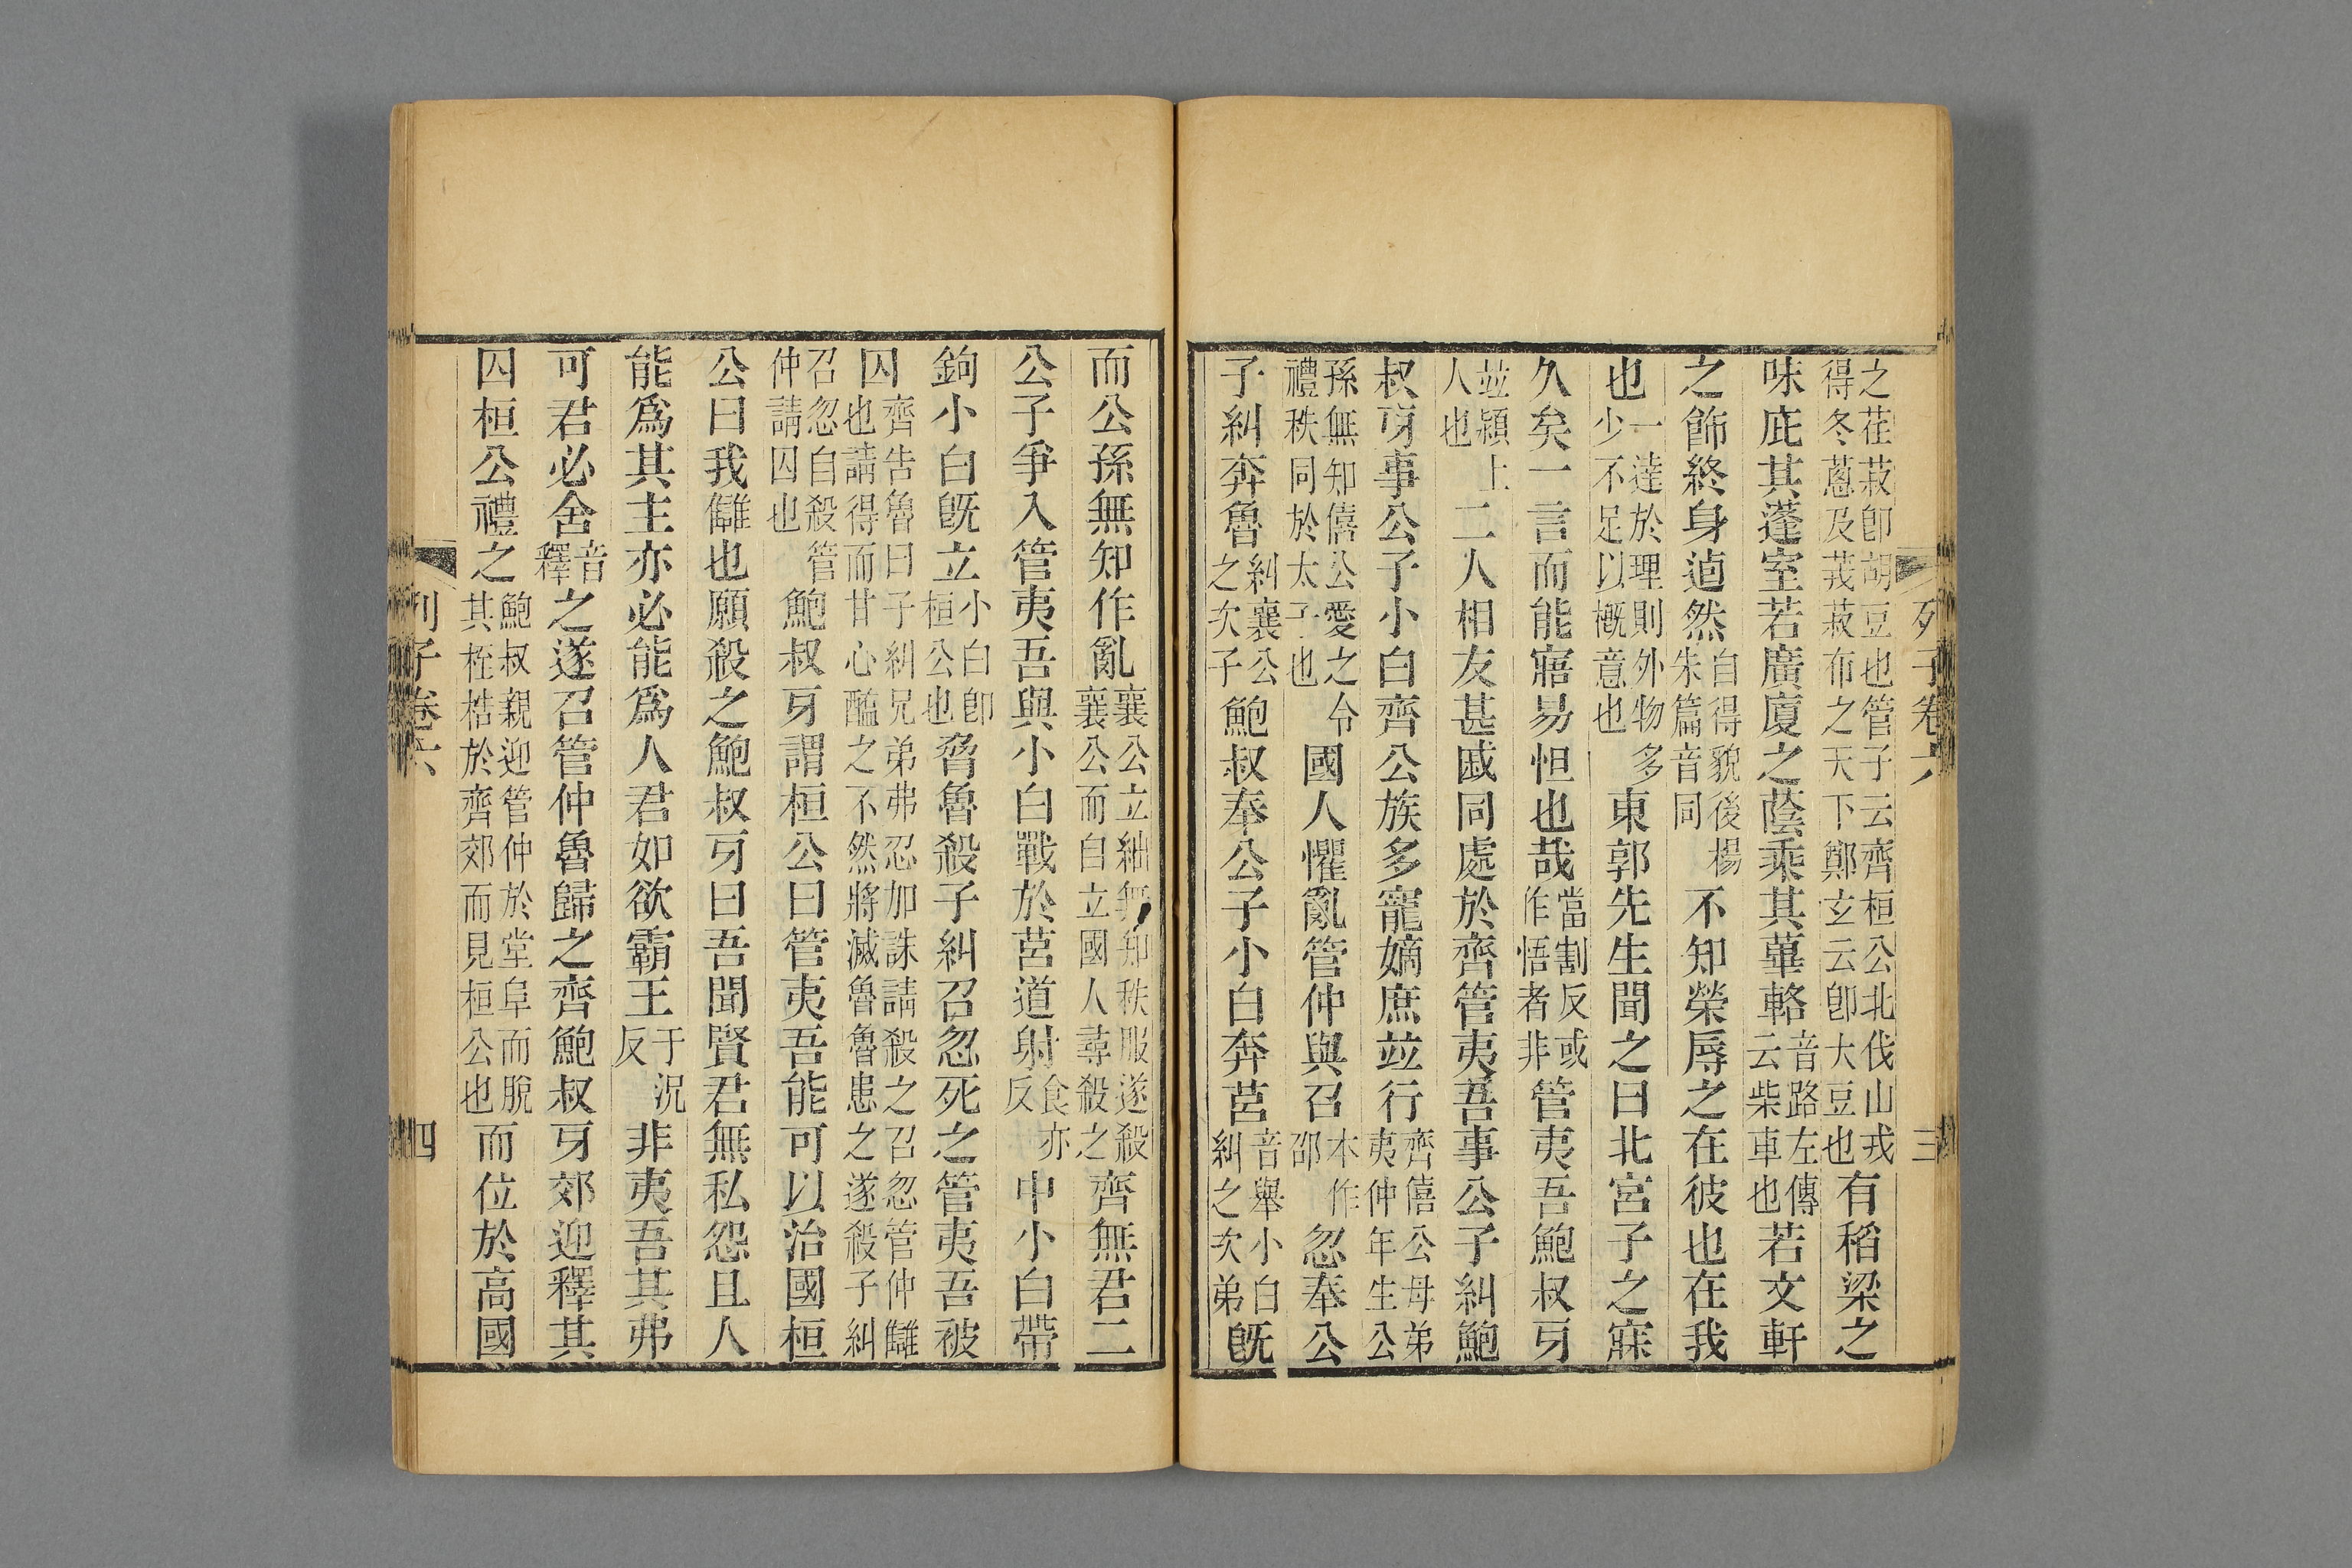 列子卷六
三
之荏菽卽胡豆也管子云齊桓公北伐山戎得冬蔥及莪菽布之天下鄭玄云卽大豆也有稻梁之
味庇其蓬室若廣廈之蔭乘其蓽輅音路左傳云柴車也若文軒
之飾終身逌然自得貌後楊朱篇音同不知榮辱之在彼也在我
也一達於理則外物多少不足以槪意也東郭先生聞之曰北宮子之寐
久矣一言而能寤易怛也哉當割反或作悟者非管夷吾鮑叔牙
竝潁上人也二人相友甚戚同處於齊管夷吾事公子糾鮑
叔牙事公子小白齊公族多寵嫡庶竝行齊僖公母弟夷仲年生公
孫無知僖公愛之令禮秩同於太子也國人懼亂管仲與召本作邵忽奉公
子糾奔魯糾襄公之次子鮑叔奉公子小白奔莒音舉小白糾之次弟旣
而公孫無知作亂襄公立絀無知秩服遂殺襄公而自立國人尋殺之齊無君二
公子爭入管夷吾與小白戰於莒道射食亦反中小白帶
鉤小白旣立小白卽桓公也脅魯殺子糾召忽死之管夷吾被
囚齊告魯曰子糾兄弟弗忍加誅請殺之召忽管仲讎也請得而甘心醢之不然將滅魯魯患之遂殺子糾
召忽自殺管仲請囚也鮑叔牙謂桓公曰管夷吾能可以治國桓
公曰我讎也願殺之鮑叔牙曰吾聞賢君無私怨且人
能爲其主亦必能爲人君如欲霸王于況反非夷吾其弗
可君必舍音釋之遂召管仲魯歸之齊鮑叔牙郊迎釋其
囚桓公禮之鮑叔親迎管仲於堂阜而脫其桎梏於齊郊而見桓公也而位於高國
列子卷六
四